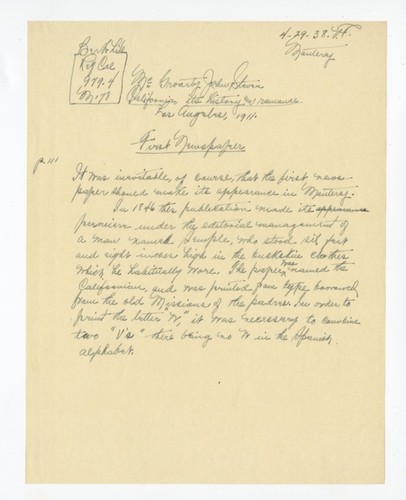 4-29-38. F.F.
Monterey
Berk Lib
Ref Cal
979.4
M178
Mc Groarty John Steven
California its History and romance
Los Angeles, 1911.
First Newspaper
p. 111
It was inevitable, of course, that the first news
paper should make its appearance in Monterey.
In 1846 this publication made its appearance
premiere under the editorial management of
a man named Semple, who stood six feet
and eight inches high in the buckskin clothes
which he habitually wore. The paper was named the
Californian, and was printed from type borrowed
from the old Missions of the padres. in order to
print the letter "W", it was necessary to combine
two "V's" there being no W in the Spanish
alphabet.